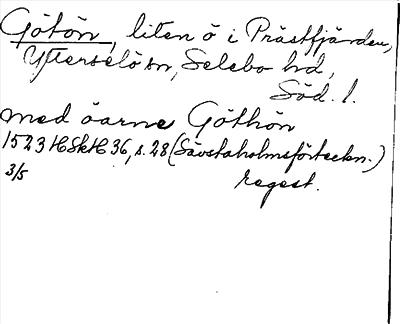 Götön, liten ö i Prästfjärden,
Ytterselö sn, Selebo hd,
Söd. l.
med öarne Göthön
1523 HSkH 36, s. 28 (Sävstaholmsförteckn.)
3/5 regest.